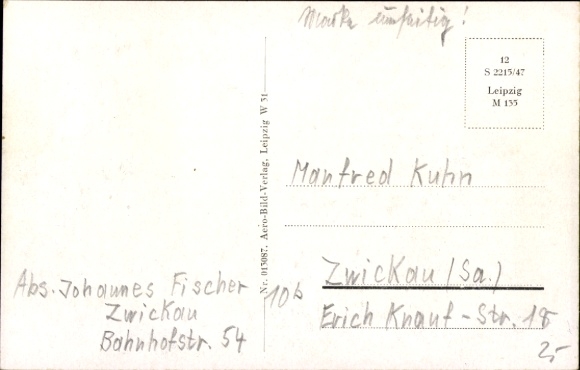 Marke einseitig!
12
S 2215/47
Leipzig
M 135
Nr. 015087. Aero-Bild-Verlag, Leipzig W 31
Manfred Kuhn
Zwickau (Sa.)
Erich Knauf-Str. 18
Abs. Johannes Fischer
Zwickau
Bahnhofstr. 54
10b
25